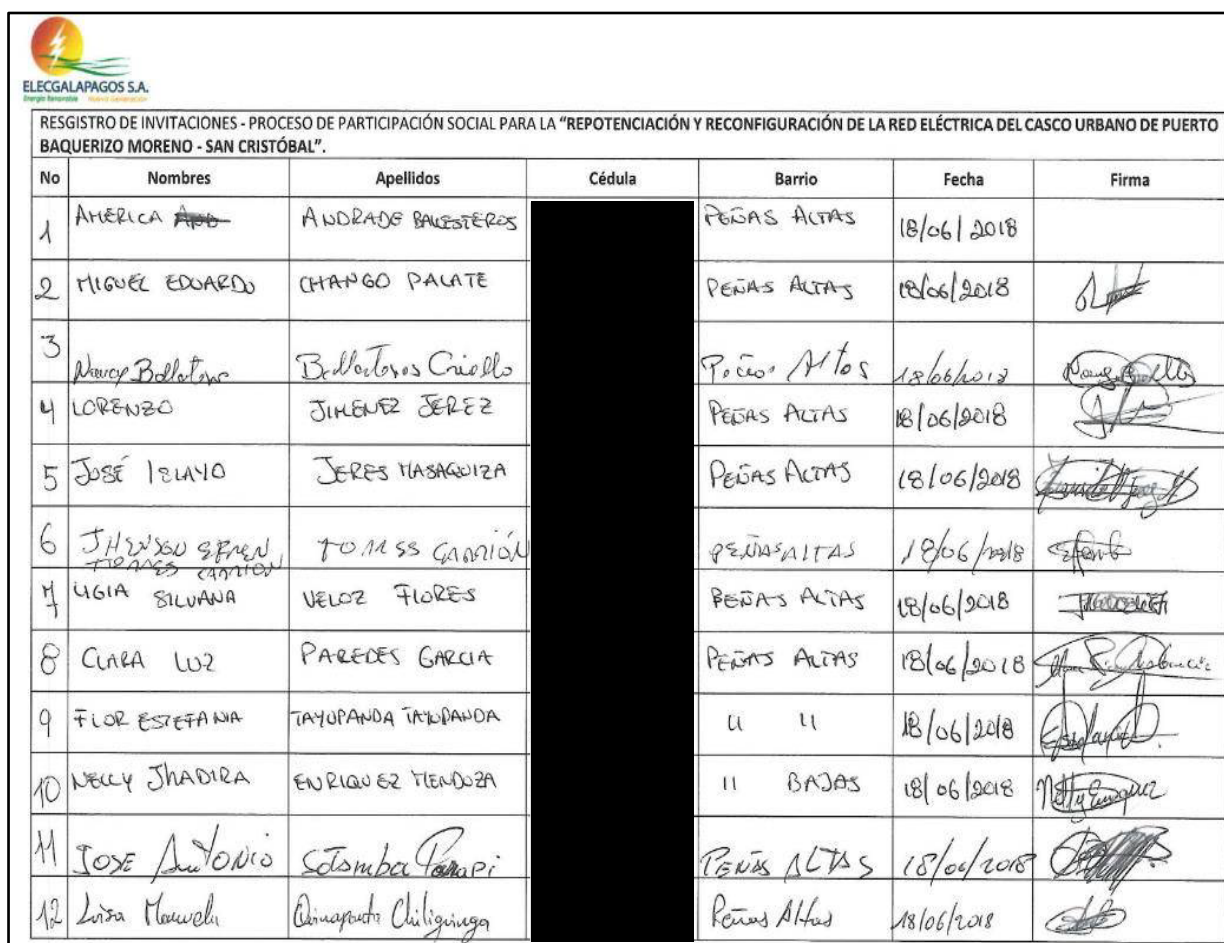 ELECGALAPAGOS S.A.
Energía Renovable Nueva Generación
RESGISTRO DE INVITACIONES - PROCESO DE PARTICIPACIÓN SOCIAL PARA LA "REPOTENCIACIÓN Y RECONFIGURACIÓN DE LA RED ELÉCTRICA DEL CASCO URBANO DE PUERTO
BAQUERIZO MORENO - SAN CRISTÓBAL".
No Nombres Apellidos Cédula Barrio Fecha Firma
1 AMÉRICA ANDRADE BALESTEROS PEÑAS ALTAS 18/06/2018
2 MIGUEL EDUARDO CHANGO PALATE PEÑAS ALTAS 18/06/2018
3 Nancy Criollo Altos 18/06/2018
4 LORENZO JIMENEZ JEREZ PEÑAS ALTAS 18/06/2018
5 JOSÉ JERES MASAQUIZA PEÑAS ALTAS 18/06/2018
6 TORRES CARRIÓN PEÑAS ALTAS 18/06/2018
TORRES CARRION
7 LIGIA SILVANA VELOZ FLORES PEÑAS ALTAS 18/06/2018
8 CLARA LUZ PAREDES GARCIA PEÑAS ALTAS 18/06/2018
9 FLOR ESTEFANIA TAYUPANDA TAYUPANDA 11 11 18/06/2018
10 NELLY JHADIRA ENRIQUEZ MENDOZA 11 BAJAS 18/06/2018 Nelly Enriquez
11 JOSE AnTONiO PEÑAS ALTAS 18/06/2018
12 Luisa Manuela Chiliquinga Peñas Altas 18/06/2018